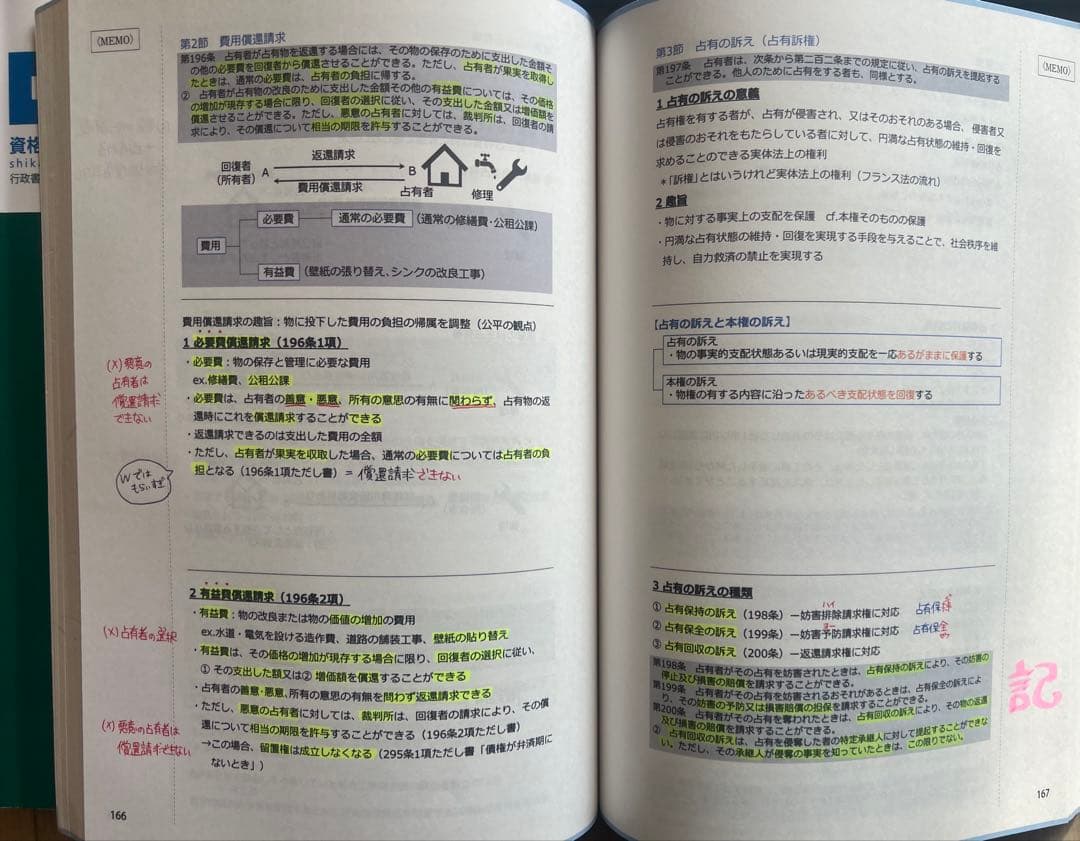 〈MEMO〉
第2節 費用償還請求
第196条 占有者が占有物を返還する場合には、その物の保存のために支出した金額
その他の必要費を回復者から償還させることができる。ただし、占有者が果実を取得し
たときは、通常の必要費は、占有者の負担に帰する。
② 占有者が占有物の改良のために支出した金額その他の有益費については、その価格
の増加が現存する場合に限り、回復者の選択に従い、その支出した金額又は増価額を
償還させることができる。ただし、悪意の占有者に対しては、裁判所は、回復者の請
求により、その償還について相当の期限を許与することができる。
返還請求
回復者
(所有者)
A
B
費用償還請求
占有者
修理
費用
必要費
通常の必要費
(通常の修繕費・公租公課)
有益費
(壁紙の張り替え、シンクの改良工事)
費用償還請求の趣旨:物に投下した費用の負担の帰属を調整(公平の観点)
1 必要費償還請求(196条1項)
・必要費:物の保存と管理に必要な費用
ex.修繕費、公租公課
・必要費は、占有者の善意・悪意、所有の意思の有無に関わらず、占有物の返
還時にこれを償還請求することができる
・返還請求できるのは支出した費用の全額
・ただし、占有者が果実を収取した場合、通常の必要費については占有者の負
担となる(196条1項ただし書)=償還請求できない
(×)悪意の
占有者は
償還請求
できない
Wでは
もらいすぎ
2 有益費償還請求(196条2項)
・有益費:物の改良または物の価値の増加の費用
ex.水道・電気を設ける造作費、道路の舗装工事、壁紙の貼り替え
・有益費は、その価格の増加が現存する場合に限り、回復者の選択に従い、
① その支出した額又は② 増価額を償還することができる
・占有者の善意・悪意、所有の意思の有無を問わず返還請求できる
・ただし、悪意の占有者に対しては、裁判所は、回復者の請求により、その償
還について相当の期限を許与することができる(196条2項ただし書)
→この場合、留置権は成立しなくなる(295条1項ただし書「債権が弁済期に
ないとき」)
(×)占有者の選択
(×)悪意の占有者は
償還請求できない
166
第3節 占有の訴え(占有訴権)
第197条 占有者は、次条から第二百二条までの規定に従い、占有の訴えを提起する
ことができる。他人のために占有をする者も、同様とする。
〈MEMO〉
1 占有の訴えの意義
占有権を有する者が、占有が侵害され、又はそのおそれのある場合、侵害者又
は侵害のおそれをもたらしている者に対して、円満な占有状態の維持・回復を
求めることのできる実体法上の権利
*「訴権」とはいうけれど実体法上の権利(フランス法の流れ)
2 趣旨
・物に対する事実上の支配を保護 cf.本権そのものの保護
・円満な占有状態の維持・回復を実現する手段を与えることで、社会秩序を維
持し、自力救済の禁止を実現する
【占有の訴えと本権の訴え】
占有の訴え
・物の事実的支配状態あるいは現実的支配を一応あるがままに保護する
本権の訴え
・物権の有する内容に沿ったあるべき支配状態を回復する
3 占有の訴えの種類
① 占有保持の訴え(198条)―妨害排除請求権に対応 占有保持
② 占有保全の訴え(199条)―妨害予防請求権に対応 占有保全
③ 占有回収の訴え(200条)―返還請求権に対応
第198条 占有者がその占有を妨害されたときは、占有保持の訴えにより、その妨害の
停止及び損害の賠償を請求することができる。
第199条 占有者がその占有を妨害されるおそれがあるときは、占有保全の訴えによ
り、その妨害の予防又は損害賠償の担保を請求することができる。
第200条 占有者がその占有を奪われたときは、占有回収の訴えにより、その物の返還
及び損害の賠償を請求することができる。
② 占有回収の訴えは、占有を侵奪した者の特定承継人に対して提起することができな
い。ただし、その承継人が侵奪の事実を知っていたときは、この限りでない。
167
資格
shika
行政書